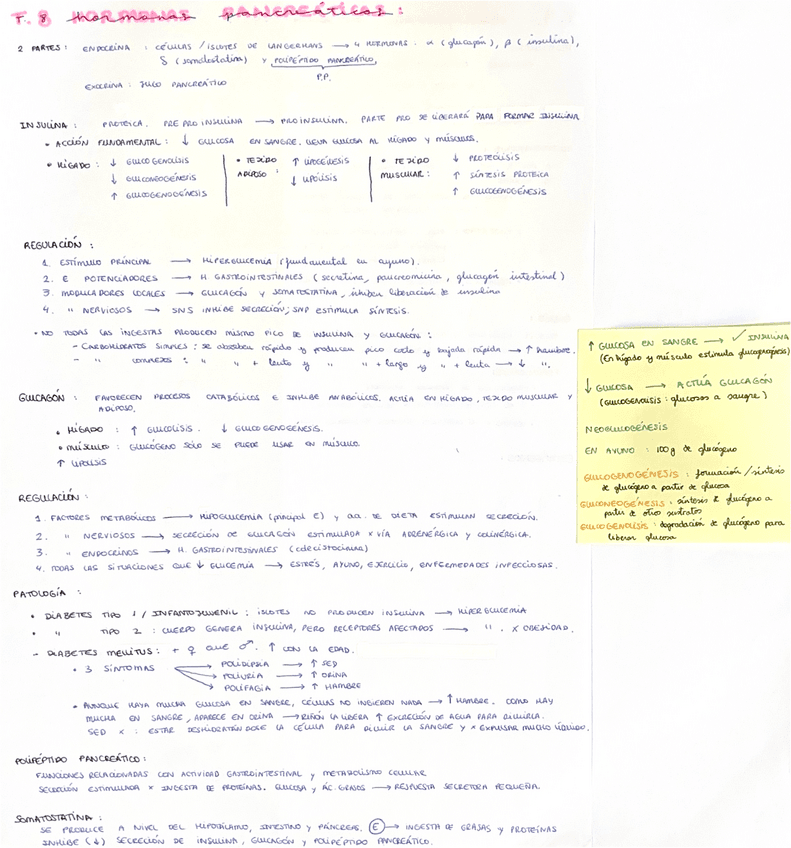 T. 8 HORMONAS pancreáticas:
2 PARTES: ENDOCRINA: CÉLULAS / ISLOTES DE LANGERHANS → 4 HORMONAS: α (glucagón), β (insulina),
δ (somatostatina) y POLIPÉPTIDO PANCREÁTICO,
P.P.
EXOCRINA: JUGO PANCREÁTICO
INSULINA: PROTEICA. PRE PRO INSULINA → PROINSULINA. PARTE PRO SE LIBERARÁ PARA FORMAR INSULINA
• ACCIÓN FUNDAMENTAL: ↓ GLUCOSA EN SANGRE. LLEVA GLUCOSA AL HÍGADO Y MÚSCULOS.
• HÍGADO: ↓ GLUCOGENOLISIS • TEJIDO ↑ LIPOGÉNESIS • TEJIDO ↓ PROTEOLISIS
↓ GLUCONEOGÉNESIS ADIPOSO: ↓ LIPOLISIS MUSCULAR: ↑ SÍNTESIS PROTEICA
↑ GLUCOGENOGÉNESIS ↑ GLUCOGENOGÉNESIS
REGULACIÓN:
1. ESTÍMULO PRINCIPAL → HIPERGLUCEMIA (fundamental en ayuno).
2. E POTENCIADORES → H. GASTROINTESTINALES (secretina, pancreomicina, glucagón intestinal)
3. MODULADORES LOCALES → GLUCAGÓN Y SOMATOSTATINA, inhiben liberación de insulina
4. " NERVIOSOS → SNS INHIBE SECRECIÓN, SNP ESTIMULA SÍNTESIS.
• NO TODAS LAS INGESTAS PRODUCEN MISMO PICO DE INSULINA Y GLUCAGÓN:
- CARBOHIDRATOS SIMPLES: se absorben rápido y producen pico corto y bajada rápida → ↑ hambre.
- " COMPLEJOS: " " + lento y " " + largo y " + lenta → ↓ ".
GLUCAGÓN: FAVORECEN PROCESOS CATABÓLICOS E INHIBE ANABÓLICOS. ACTÚA EN HÍGADO, TEJIDO MUSCULAR Y
ADIPOSO.
• HÍGADO: ↑ GLUCOLISIS. ↓ GLUCOGENOGÉNESIS.
• MÚSCULO: GLUCÓGENO SOLO SE PUEDE USAR EN MÚSCULO.
↑ LIPOLISIS
REGULACIÓN:
1. FACTORES METABÓLICOS → HIPOGLUCEMIA (principal E) y aa. DE DIETA ESTIMULAN SECRECIÓN.
2. " NERVIOSOS → SECRECIÓN DE GLUCAGÓN ESTIMULADA X VÍA ADRENÉRGICA Y COLINÉRGICA.
3. " ENDOCRINOS → H. GASTROINTESTINALES (colecistocinina)
4. TODAS LAS SITUACIONES QUE ↓ GLUCEMIA → ESTRÉS, AYUNO, EJERCICIO, ENFERMEDADES INFECCIOSAS.
PATOLOGÍA:
• DIABETES TIPO 1 / INFANTOJUVENIL: ISLOTES NO PRODUCEN INSULINA → HIPERGLUCEMIA
• " TIPO 2: CUERPO GENERA INSULINA, PERO RECEPTORES AFECTADOS → ". X OBESIDAD.
- DIABETES MELLITUS: + ♀ QUE ♂. ↑ CON LA EDAD.
• 3 SÍNTOMAS → POLIDIPSIA → ↑ SED
→ POLIURIA → ↑ ORINA
→ POLIFAGIA → ↑ HAMBRE
• AUNQUE HAYA MUCHA GLUCOSA EN SANGRE, CÉLULAS NO INGIEREN NADA → ↑ HAMBRE. COMO HAY
MUCHA EN SANGRE, APARECE EN ORINA → RIÑÓN LA LIBERA ↑ EXCRECIÓN DE AGUA PARA DILUIRLA.
SED X: ESTAR DESHIDRATÁNDOSE LA CÉLULA PARA DILUIR LA SANGRE Y X EXPULSAR MUCHO LÍQUIDO.
POLIPÉPTIDO PANCREÁTICO:
FUNCIONES RELACIONADAS CON ACTIVIDAD GASTROINTESTINAL Y METABOLISMO CELULAR
SECRECIÓN ESTIMULADA X INGESTA DE PROTEÍNAS. GLUCOSA Y ÁC. GRASOS → RESPUESTA SECRETORA PEQUEÑA.
SOMATOSTATINA:
SE PRODUCE A NIVEL DEL HIPOTÁLAMO, INTESTINO Y PÁNCREAS. E → INGESTA DE GRASAS Y PROTEÍNAS
INHIBE (↓) SECRECIÓN DE INSULINA, GLUCAGÓN Y POLIPÉPTIDO PANCREÁTICO.
↑ GLUCOSA EN SANGRE → ✓ INSULINA
(En hígado y músculo estimula glucogénesis)
↓ GLUCOSA → ACTÚA GLUCAGÓN
(GLUCOGENOLISIS: glucosa a sangre)
NEOGLUCOGÉNESIS
EN AYUNO: 100 g de glucógeno
GLUCOGENOGÉNESIS: formación/síntesis
de glucógeno a partir de glucosa
GLUCONEOGÉNESIS: síntesis de glucógeno a
partir de otros sustratos
GLUCOGENOLISIS: degradación de glucógeno para
liberar glucosa